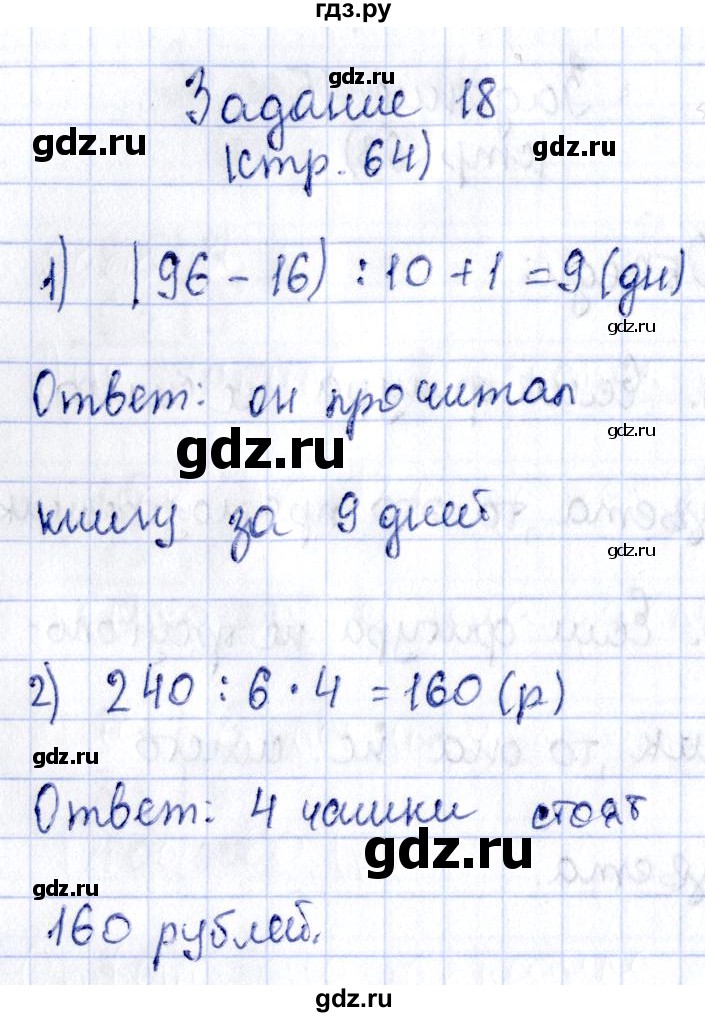 гдз.ру
gdz.ru
Задание 18
gdz.ru
gdz.ru
(стр. 64)
1) (96 - 16) : 10 + 1 = 9 (дн)
gdz.ru
Ответ: он прочитал
gdz.ru
gdz.ru
книгу за 9 дней
gdz.ru
2) 240 : 6 · 4 = 160 (р)
gdz.ru
Ответ: 4 чашки стоят
gdz.ru
gdz.ru
160 рублей.
gdz.ru